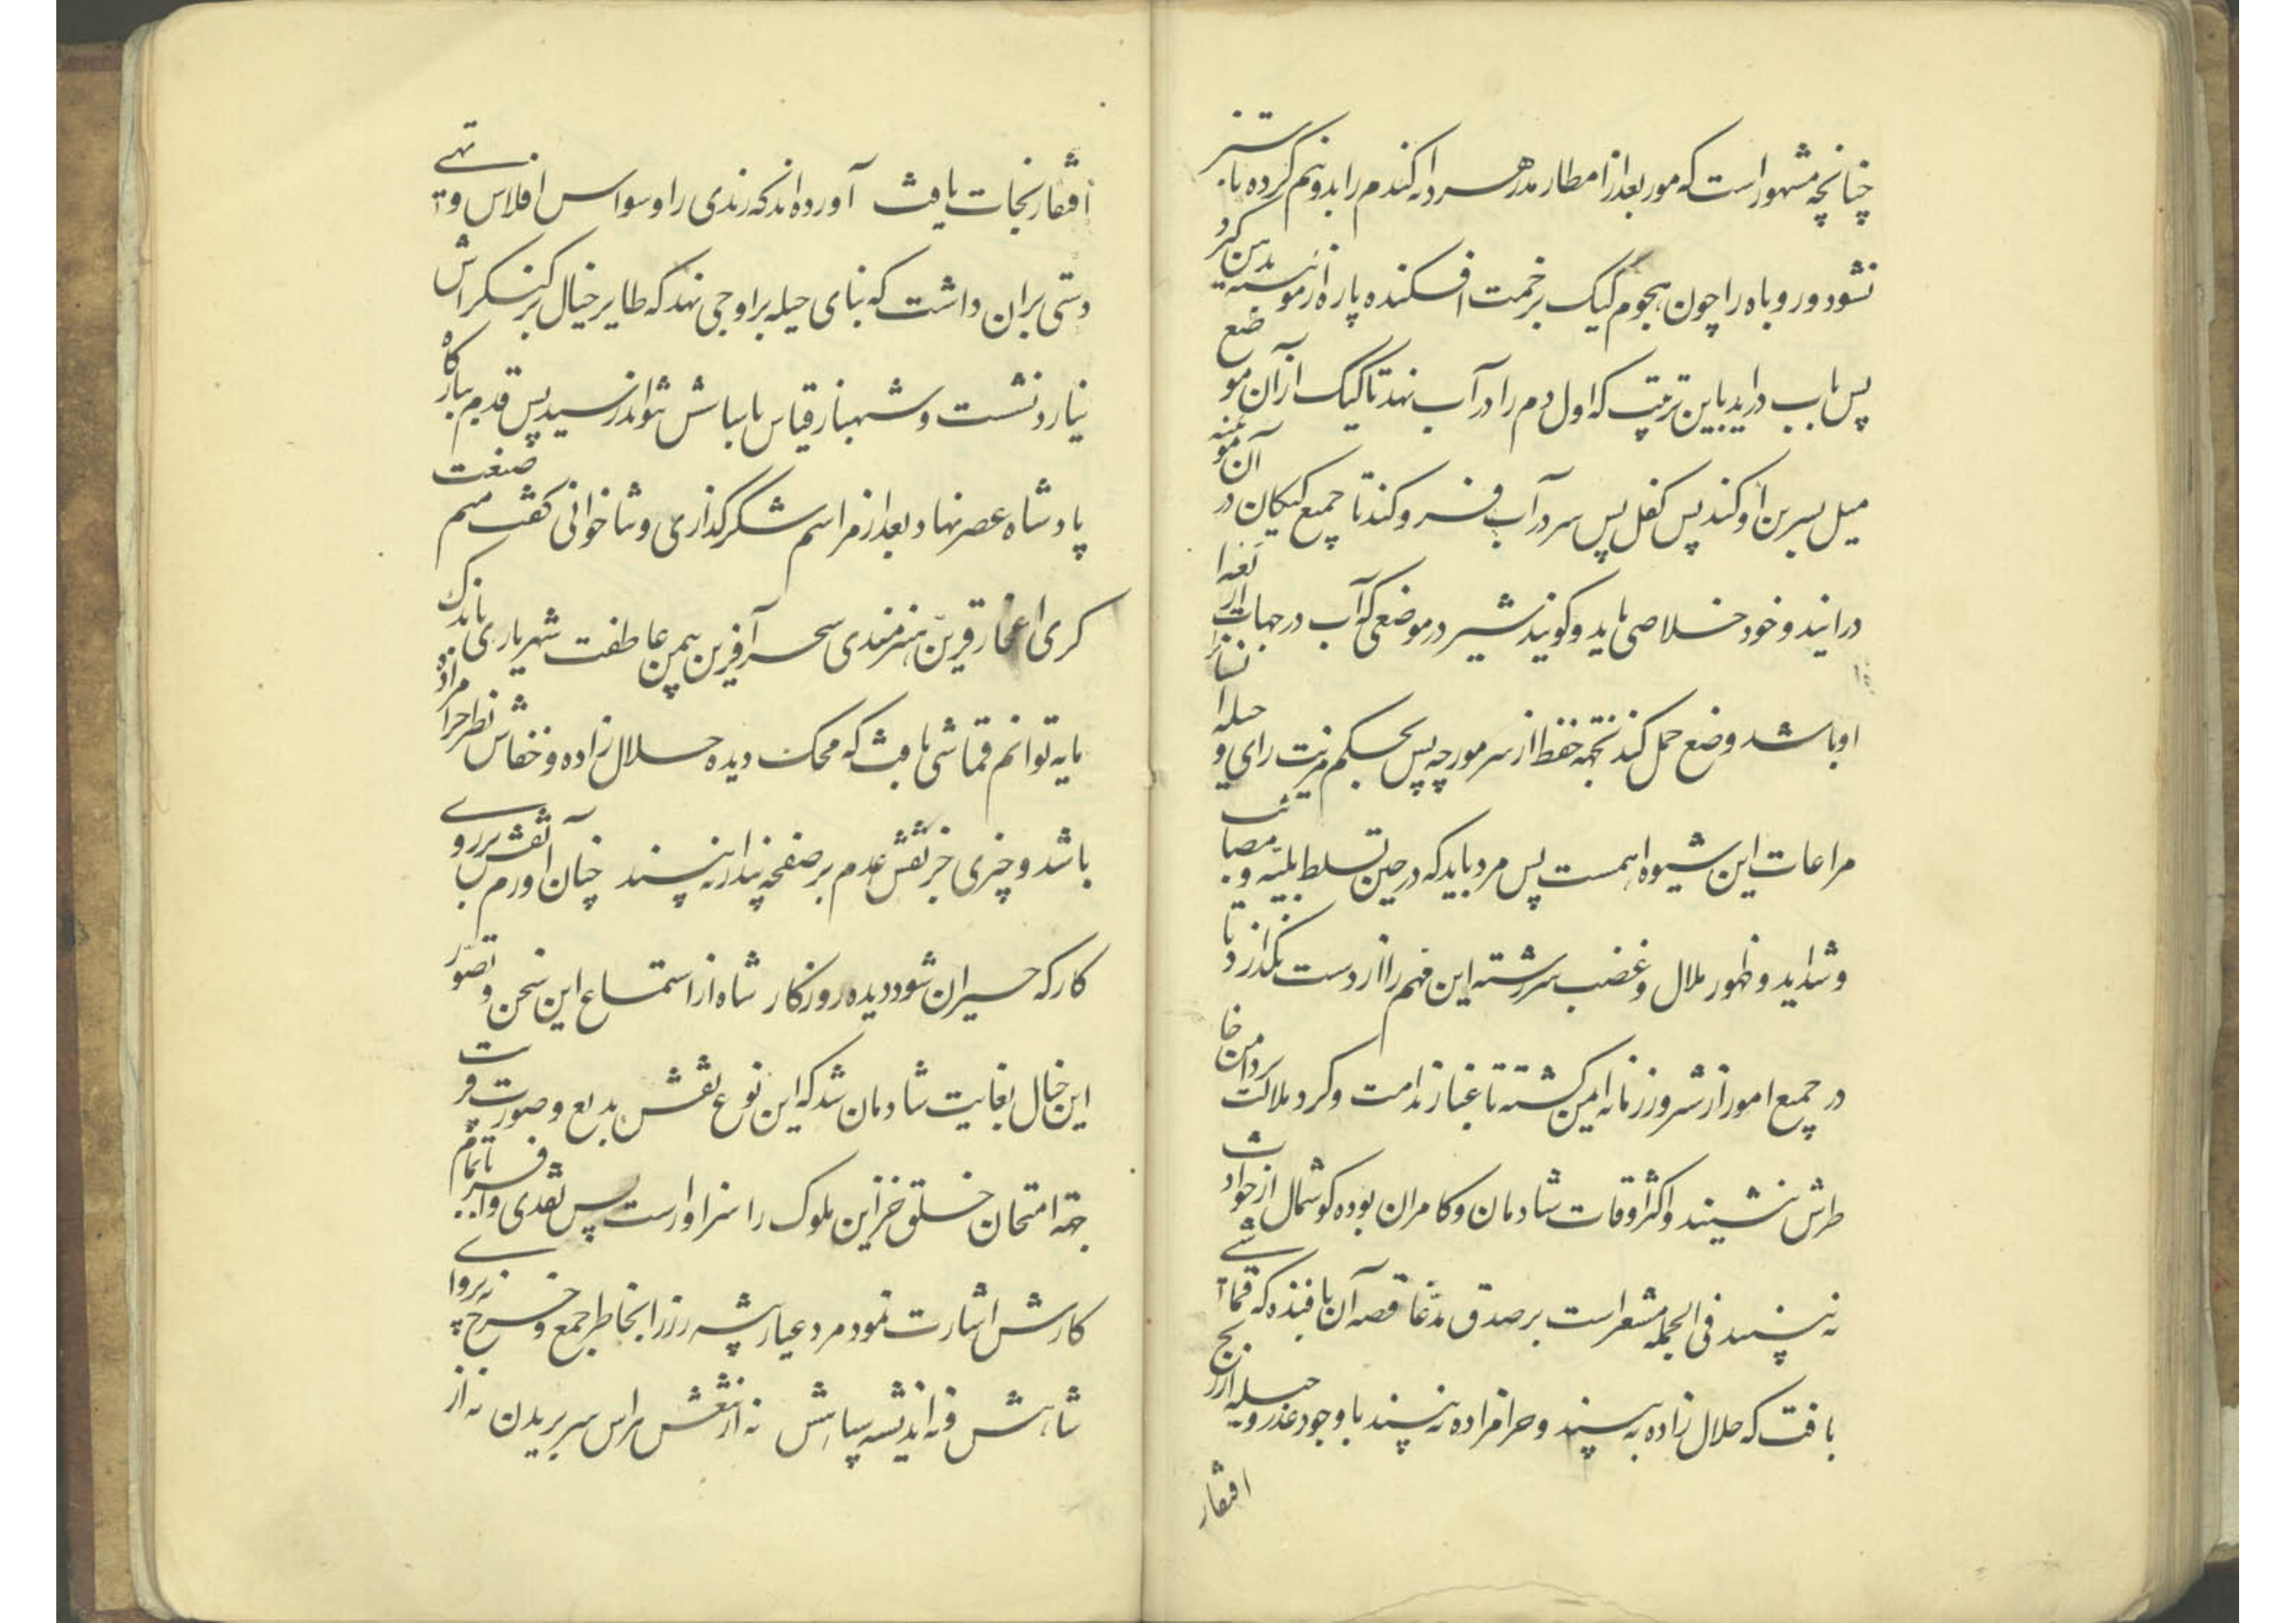 چنانچه مشهور است که مور بعد از امطار مدر هر دانه کندم را بدو نیم کرده تا سبز
نشود و روباه را چون هجوم کیک برحمت افکنده پاره از موینه بدهن کیرد
پس باب دراید باین ترتیب که اول دم را در آب نهد تا کیک از آن موضع
میل بسرین او کند پس کفل پس سر در آب فرو کند تا جمیع کیکان در آن موینه
درایند و خود خلاصی یابد و کویند شیر در موضعی که آب در جهات از
او باشد وضع حمل کند بجهة حفظ از شر مورچه پس بحکم مزیت رای و حیله
مراعات این شیوه اهمست پس مرد باید که در حین تسلط بلیه و مصائب
و شداید و ظهور ملال و غضب سررشته این فهم را از دست نکذارد تا
در جمیع امور از شرور زمانه ایمن کشته تا غبار ندامت و کرد ملالت بر دامن خا
طرش ننشیند و اکثر اوقات شادمان و کامران بوده کوشمال از حوادث
نه بیند فی الجمله مشعر است بر صدق مدعا قصه آن بافنده که قماشی
بافت که حلال زاده به بیند و حرامزاده نه بیند با وجود عذر و حیله از رنج
افتقار
افتقار نجات یافت آورده اند که رندی را وسواس افلاس و تهی
دستی بران داشت که بنای حیله بر اوجی نهد که طایر خیال بر کنکره اش
نیارد نشست و شهباز قیاس ببامش نتواند رسید پس قدم ببارکاه
پادشاه عصر نهاد بعد از مراسم شکرکذاری و ثناخوانی کفت منم صنعت
کری اعجاز قرین هنرمندی سحر آفرین بیمن عاطفت شهریاری باندک
مایه توانم قماشی بافت که محک دیده حلال زاده و خفاش نظر حرامزاده
باشد و چیزی جز نقش عدم بر صفحه پندار نه بیند چنان آورم نقش بر روی
کار که حیران شود دیده روزکار شاه از استماع این سخن و تصور
این خیال بغایت شادمان شد که این نوع نقش بدیع و صورت
جهة امتحان خلق خزاین ملوک را سزاوارست پس نقدی وافر باتمام
کارش اشارت نمود مرد عیار پیشه زر را بخاطر جمع خرج نه پروای
شاهش نه اندیشه سپاهش نه از نقش هراس سر بریدن نه از